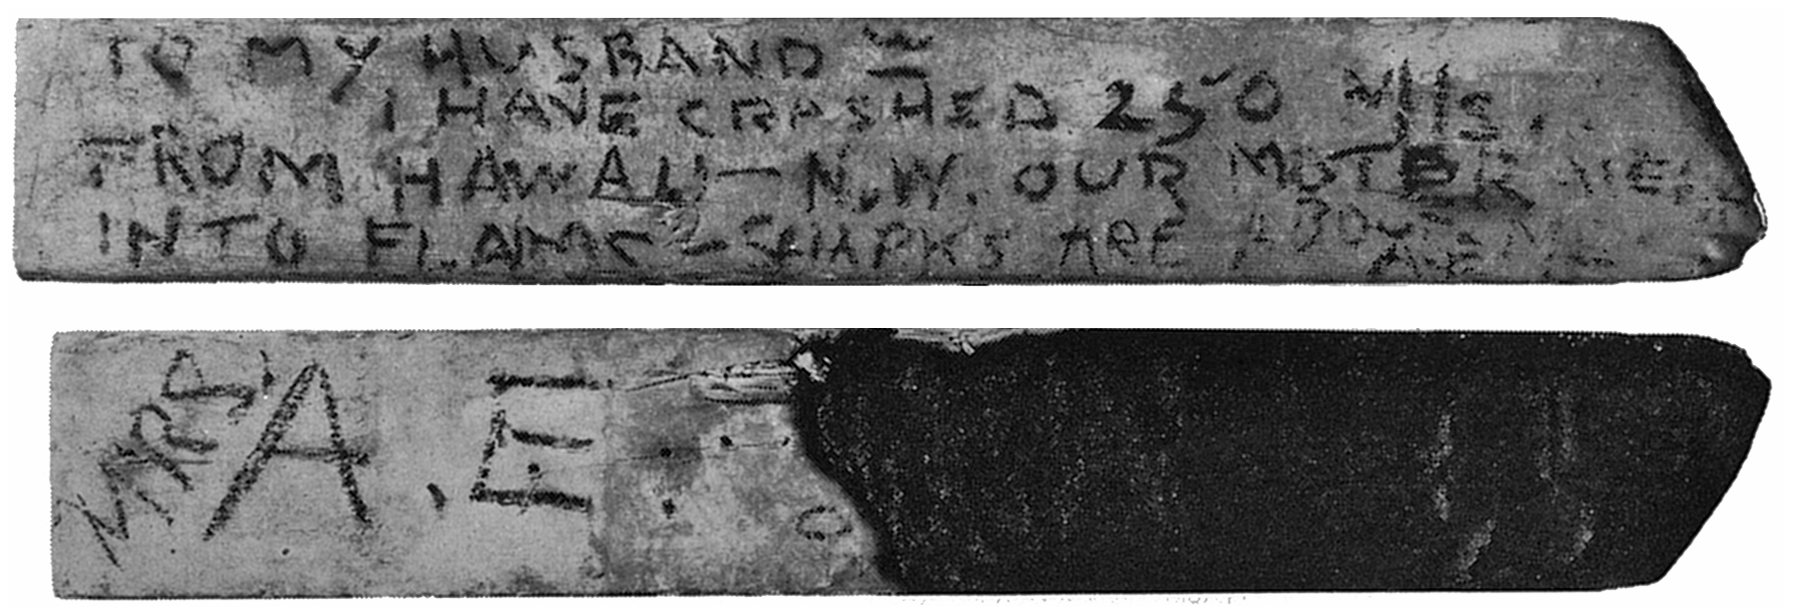 TO MY HUSBAND
I HAVE CRASHED 250
FROM HAWAII — N.W. OUR MOTER
INTO FLAMS — SHARKS ARE ABOUT
A.E.
MRS
A. E.